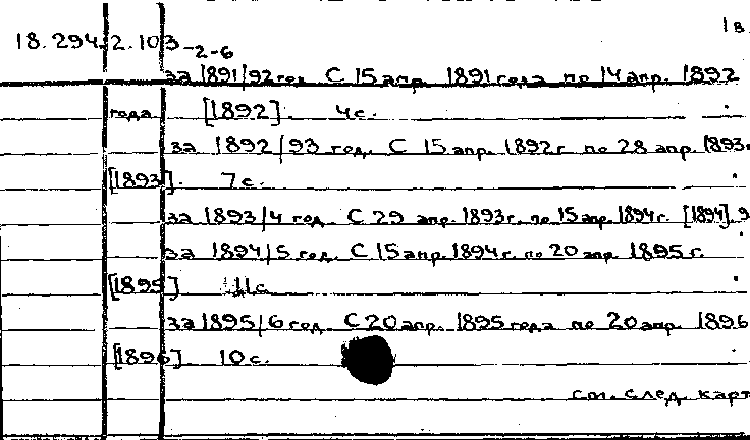 18.294.2.103-2-6
за 1891/92 год С 15 апр. 1891 года по 14 апр. 1892
года [1892]. 4с.
за 1892/93 год. С 15 апр. 1892г по 28 апр. 1893г
[1893]. 7с.
за 1893/4 год. С 29 апр. 1893г. по 15 апр. 1894г. [1894]. 9
за 1894/5 год. С 15 апр. 1894г. по 20 апр. 1895г.
[1895] 11с
за 1895/6 год. С 20 апр. 1895 года по 20 апр. 1896
[1896] 10с.
см. след. карт